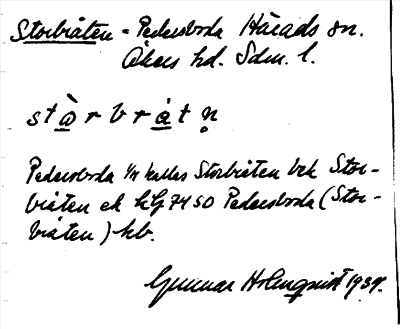 Storbråten = Pedersborda Härads sn.
Åkers hd. Sdm. l.
stà̱rbrá̱tn̥
Pedersborda 1/4 kallas Storbråten bek Stor-
bråten ek hLg 7450 Pedersborda (Stor-
bråten) hb.
Gunnar Holmquist 1939.